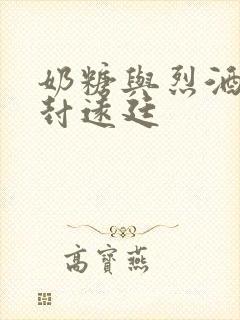 奶糖與烈酒
封遠廷
高寶燕